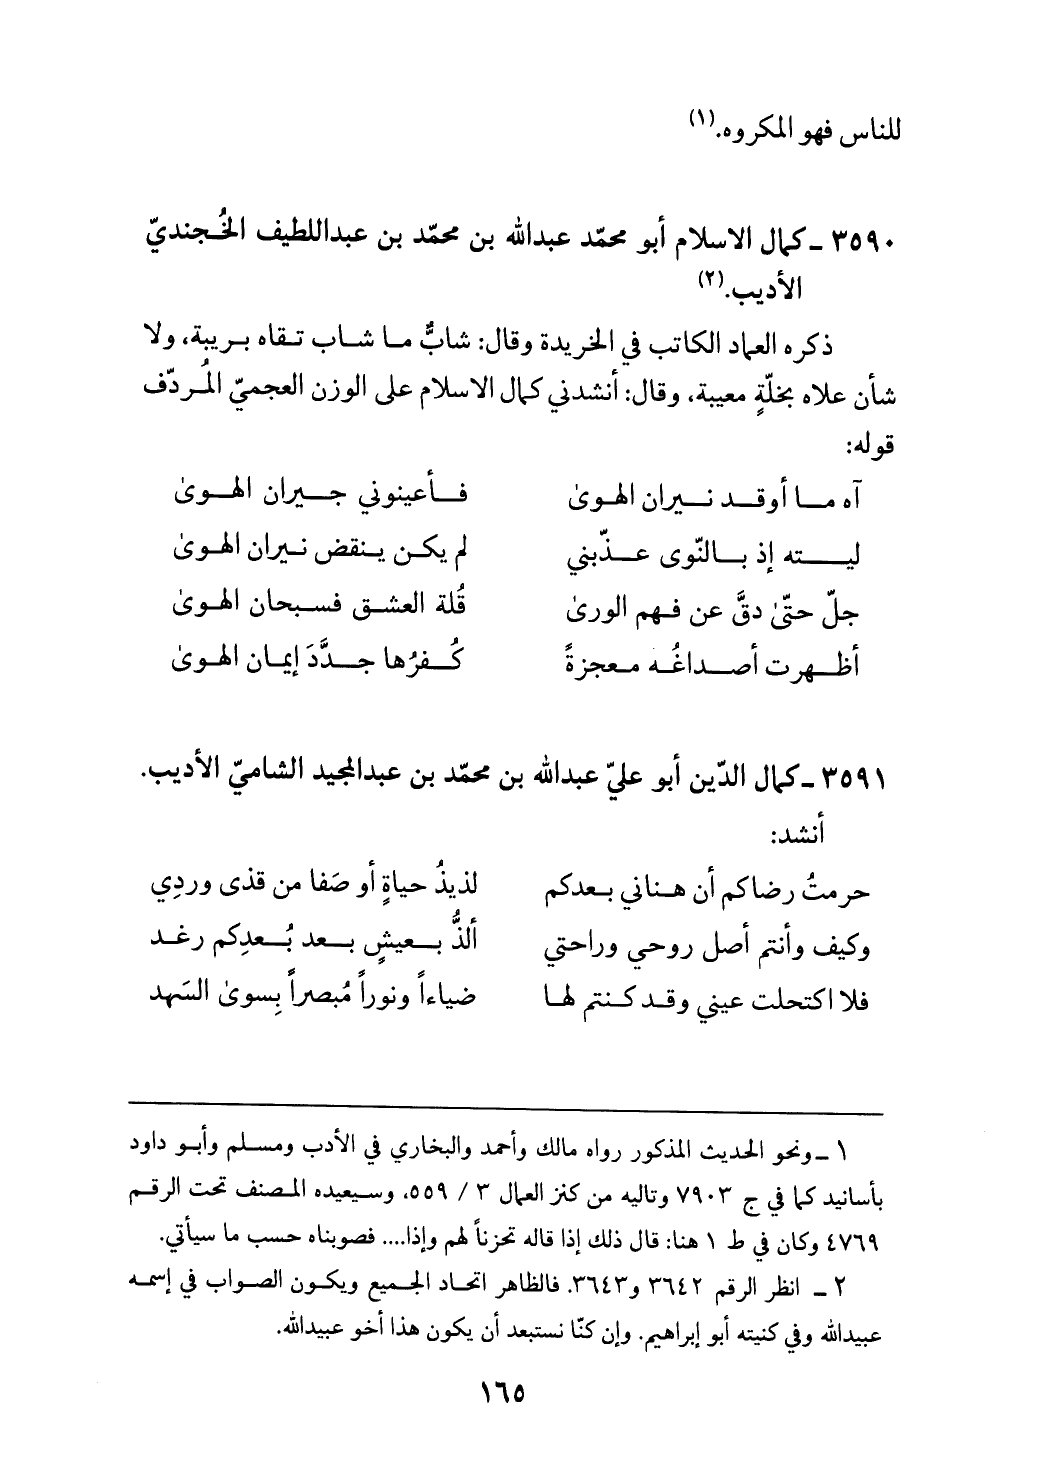 للناس فهو المكروه.(١)
٣٥٩٠ ـ كمال الاسلام أبو محمّد عبدالله بن محمّد بن عبداللطيف الخُجنديّ
الأديب.(٢)
ذكره العماد الكاتب في الخريدة وقال: شابٌّ ما شاب تقاه بريبة، ولا
شأن علاه بخلّةٍ معيبة، وقال: أنشدني كمال الاسلام على الوزن العجميّ المُردّف
قوله:
آه ما أوقد نيران الهوىٰ فأعينوني جيران الهوىٰ
ليته إذ بالنّوى عذّبني لم يكن ينقض نيران الهوىٰ
جلّ حتّىٰ دقَّ عن فهم الورىٰ قُلة العشق فسبحان الهوىٰ
أظهرت أصداغُه معجزةً كُفرُها جدَّدَ إيمان الهوىٰ
٣٥٩١ ـ كمال الدّين أبو عليّ عبدالله بن محمّد بن عبدالمجيد الشاميّ الأديب.
أنشد:
حرمتُ رضاكم أن هناني بعدكم لذيذُ حياةٍ أو صَفا من قذى وردِي
وكيف وأنتم أصل روحي وراحتي ألذُّ بعيشٍ بعد بُعدِكم رغد
فلا اكتحلت عيني وقد كنتم لها ضياءاً ونوراً مُبصراً بِسوىٰ السَهد
١ ـ ونحو الحديث المذكور رواه مالك وأحمد والبخاري في الأدب ومسلم وأبو داود
بأسانيد كما في ج ٧٩٠٣ وتاليه من كنز العمال ٣ / ٥٥٩، وسيعيده المصنف تحت الرقم
٤٧٦٩ وكان في ط ١ هنا: قال ذلك إذا قاله تحزناً لهم وإذا.... فصوبناه حسب ما سيأتي.
٢ ـ انظر الرقم ٣٦٤٢ و٣٦٤٣. فالظاهر اتحاد الجميع ويكون الصواب في إسمه
عبيدالله وفي كنيته أبو إبراهيم. وإن كنّا نستبعد أن يكون هذا أخو عبيدالله.
١٦٥